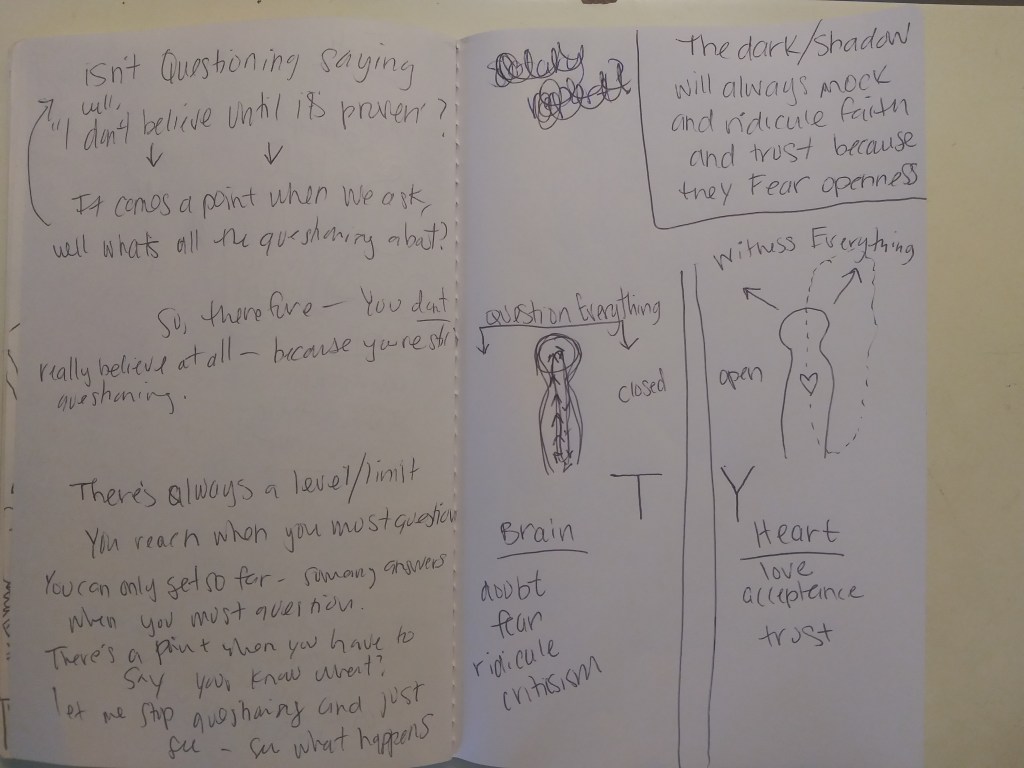 isn't Questioning saying
well,
"I don't believe until it's proven"?
It comes a point when we ask,
well whats all the questioning about?
So, therefore - You dont
really believe at all - because you're still
questioning.
There's always a level/limit
You reach when you most question
You can only get so far - so many answers
when you most question.
There's a point when you have to
say you know what?
let me stop questioning and just
see - see what happens
The dark/shadow
will always mock
and ridicule faith
and trust because
they Fear openness
Question Everything
closed
T
Brain
doubt
fear
ridicule
critisism
Witness Everything
open
Y
Heart
love
acceptance
trust